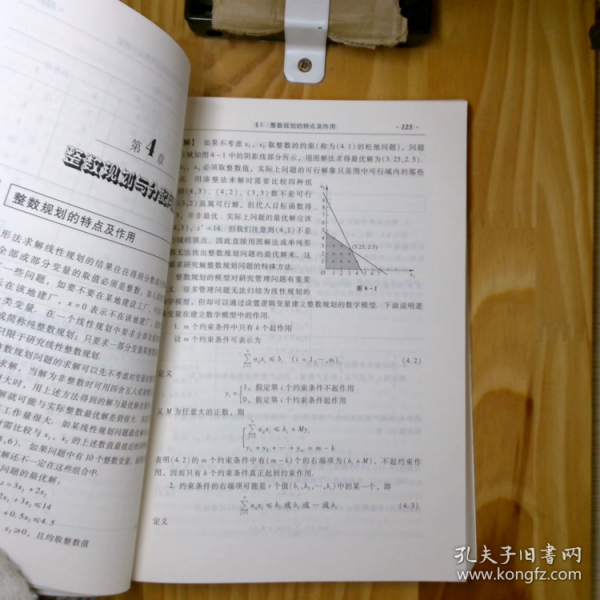 第4章
整数规划与分配
整数规划的特点及作用
形法求解线性规划的结果往往得到分数或小数
全部或部分变量的取值必须是整数
一些问题，如要不要在某地建设工厂
在该地建厂，x=0表示不在该地建厂
类变量，在一个线性规划中要求全部变量
或简称纯整数规划；只要求一部分变量取整数
只限于研究线性整数规划。
整数规划问题的求解可以先不考虑对变量的整数
求解，当解为非整数时可用四舍五入
大时，用上述方法得到的解与最优解
解就可能与实际整数最优解差别很大
工作量很大。如某线性规划问题最优解为
需比较与x₁，x₂的上述数值最接近的
，6)。如果问题中有10个整数变量
解还不一定在这些组合中。
问题的最优解：
=3x₁+2x₂
2x₁+3x₂≤14
+0.5x₂≤4.5
x₂≥0，且均取整数值
§1 整数规划的特点及作用 ·125·
解】 如果不考虑x₁，x₂取整数的约束(称为(4.1)的松弛问题)，问题
域如图4-1中的阴影线部分所示。用图解法求得最优解为(3.25,2.5)。
x₁，x₂必须取整数值，实际上问题的可行解集只是图中可行域内的那些
点。用凑整法来解时需要比较四种组
的(4,3)、(4,2)、(3,3)都不是可行
(3,2)虽属可行解，但代入目标函数得
，并非最优。实际上问题的最优解应该
，z*=14。但我们注意到(4,1)不是
域的顶点，因此直接用图解法或单纯形
无法找出整数规划问题的最优解来，这
求研究解整数规划问题的特殊方法。
(3.25,2.5)
图4-1
整数规划的模型对研究管理问题有重要
义。很多管理问题无法归结为线性规划的
学模型，但却可以通过设置逻辑变量建立整数规划的数学模型。下面说明逻
变量在建立数学模型中的作用。
1. m个约束条件中只有k个起作用
设m个约束条件可表示为
∑aᵢⱼxⱼ≤bᵢ (i=1,…,m) (4.2)
定义
yᵢ={1，假定第i个约束条件不起作用
0，假定第i个约束条件起作用
又M为任意大的正数，则
{∑aᵢⱼxⱼ≤bᵢ+Myᵢ
y₁+y₂+…+yₘ=m-k
表明(4.2)的m个约束条件中有(m-k)个的右端项为(bᵢ+M)，不起约束作
用，因而只有k个约束条件真正起到约束作用。
2. 约束条件的右端项可能是r个值(b₁,b₂,…,bᵣ)中的某一个，即
∑aᵢⱼxⱼ≤b₁或b₂或…或bᵣ (4.3)
定义
孔夫子旧书网
www.kongfz.com